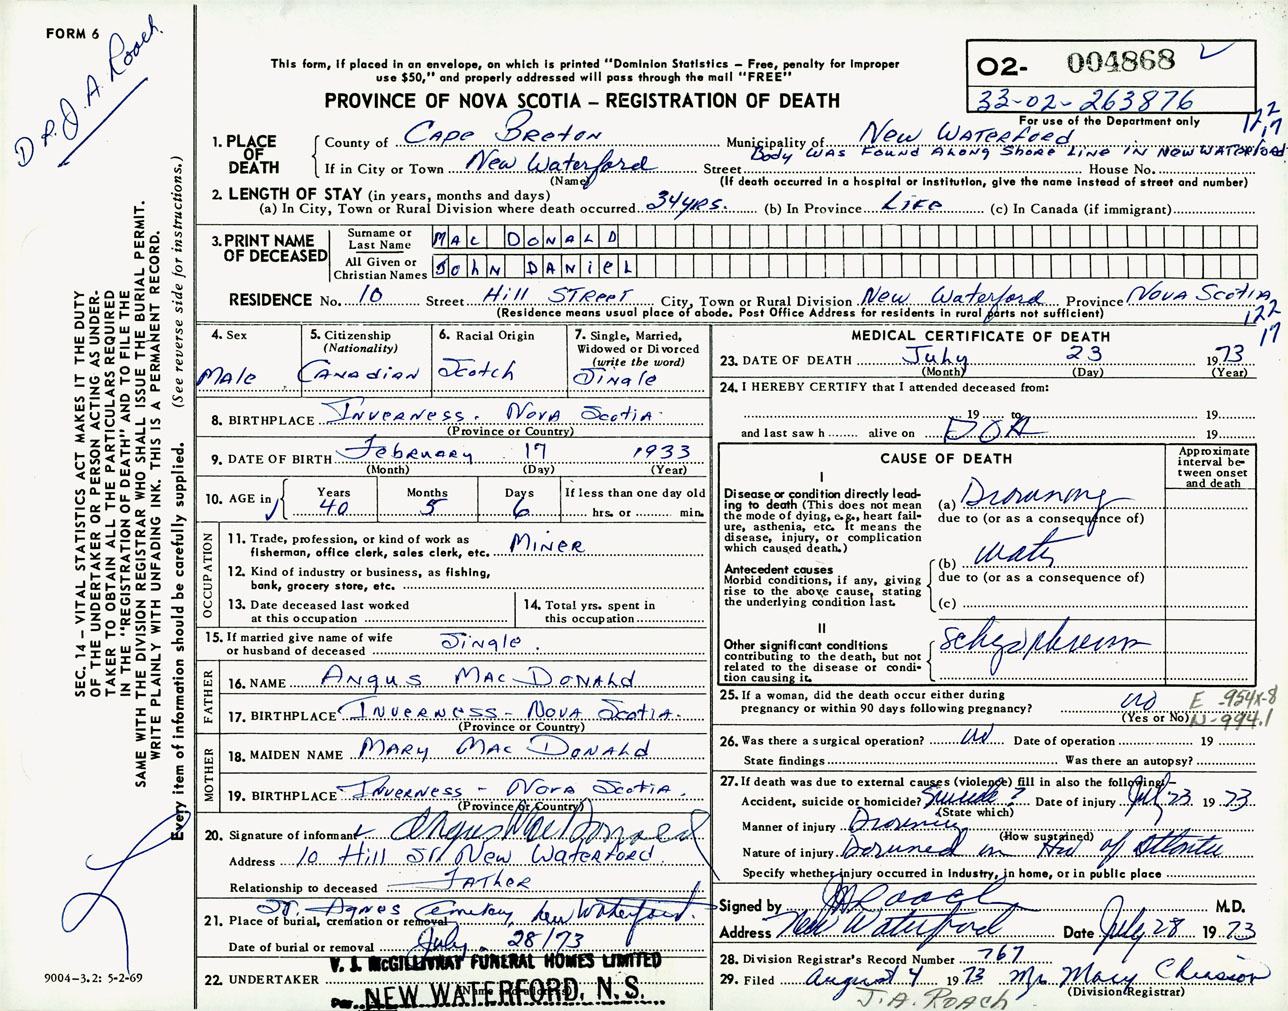 FORM 6
Dr. J. A. Roach.
This form, if placed in an envelope, on which is printed "Dominion Statistics – Free, penalty for improper
use $50," and properly addressed will pass through the mail "FREE"
PROVINCE OF NOVA SCOTIA – REGISTRATION OF DEATH
02- 004868
33-02-263876
For use of the Department only
122
17
1. PLACE OF DEATH
County of Cape Breton Municipality of New Waterford
Body was found along shore line in New Waterford
If in City or Town New Waterford Street House No.
(Name) (If death occurred in a hospital or institution, give the name instead of street and number)
2. LENGTH OF STAY (in years, months and days)
(a) In City, Town or Rural Division where death occurred 34 yrs. (b) In Province Life (c) In Canada (if immigrant)
3. PRINT NAME OF DECEASED
Surname or Last Name MAC DONALD
All Given or Christian Names JOHN DANIEL
RESIDENCE No. 10 Street Hill Street City, Town or Rural Division New Waterford Province Nova Scotia
(Residence means usual place of abode. Post Office Address for residents in rural parts not sufficient)
122
17
4. Sex
Male
5. Citizenship (Nationality)
Canadian
6. Racial Origin
Scotch
7. Single, Married, Widowed or Divorced (write the word)
Single
8. BIRTHPLACE Inverness - Nova Scotia
(Province or Country)
9. DATE OF BIRTH February 17 1933
(Month) (Day) (Year)
10. AGE in Years 40 Months 5 Days 6 If less than one day old
hrs. or min.
OCCUPATION
11. Trade, profession, or kind of work as
fisherman, office clerk, sales clerk, etc. Miner
12. Kind of industry or business, as fishing,
bank, grocery store, etc.
13. Date deceased last worked
at this occupation
14. Total yrs. spent in
this occupation
15. If married give name of wife
or husband of deceased Single.
FATHER
16. NAME Angus Mac Donald
17. BIRTHPLACE Inverness - Nova Scotia.
(Province or Country)
MOTHER
18. MAIDEN NAME Mary Mac Donald
19. BIRTHPLACE Inverness - Nova Scotia.
(Province or Country)
20. Signature of informant Angus MacDonald
Address 10 Hill St. New Waterford.
Relationship to deceased Father
21. Place of burial, cremation or removal St. Agnes Cemetery, New Waterford.
Date of burial or removal July 28/73
22. UNDERTAKER
V. J. McGILLIVRAY FUNERAL HOMES LIMITED
Per NEW WATERFORD, N. S.
MEDICAL CERTIFICATE OF DEATH
23. DATE OF DEATH July 23 1973
(Month) (Day) (Year)
24. I HEREBY CERTIFY that I attended deceased from:
19 to 19
and last saw h alive on DOA 19
CAUSE OF DEATH
Approximate interval between onset and death
I
Disease or condition directly leading to death (This does not mean the mode of dying, e.g., heart failure, asthenia, etc. It means the disease, injury, or complication which caused death.)
(a) Drowning
due to (or as a consequence of)
Antecedent causes
Morbid conditions, if any, giving rise to the above cause, stating the underlying condition last.
(b) water
due to (or as a consequence of)
(c)
II
Other significant conditions
contributing to the death, but not related to the disease or condition causing it.
Schizophrenia
25. If a woman, did the death occur either during
pregnancy or within 90 days following pregnancy? no
(Yes or No)
E -954X-8
N-994.1
26. Was there a surgical operation? no Date of operation 19
State findings Was there an autopsy?
27. If death was due to external causes (violence) fill in also the following:–
Accident, suicide or homicide? Suicide? Date of injury July 23 1973
(State which)
Manner of injury Drowning
(How sustained)
Nature of injury in of Atlantic
Specify whether injury occurred in Industry, in home, or in public place
Signed by JA Roach M.D.
Address New Waterford Date July 28 1973
28. Division Registrar's Record Number 767
29. Filed August 4 1973 Mrs Mary Chiasson
(Division Registrar)
J. A. ROACH
SEC. 14 – VITAL STATISTICS ACT MAKES IT THE DUTY
OF THE UNDERTAKER OR PERSON ACTING AS UNDER-
TAKER TO OBTAIN ALL THE PARTICULARS REQUIRED
IN THE "REGISTRATION OF DEATH" AND TO FILE THE
SAME WITH THE DIVISION REGISTRAR WHO SHALL ISSUE THE BURIAL PERMIT.
WRITE PLAINLY WITH UNFADING INK. THIS IS A PERMANENT RECORD.
Every item of information should be carefully supplied. (See reverse side for instructions.)
9004–3.2: 5-2-69